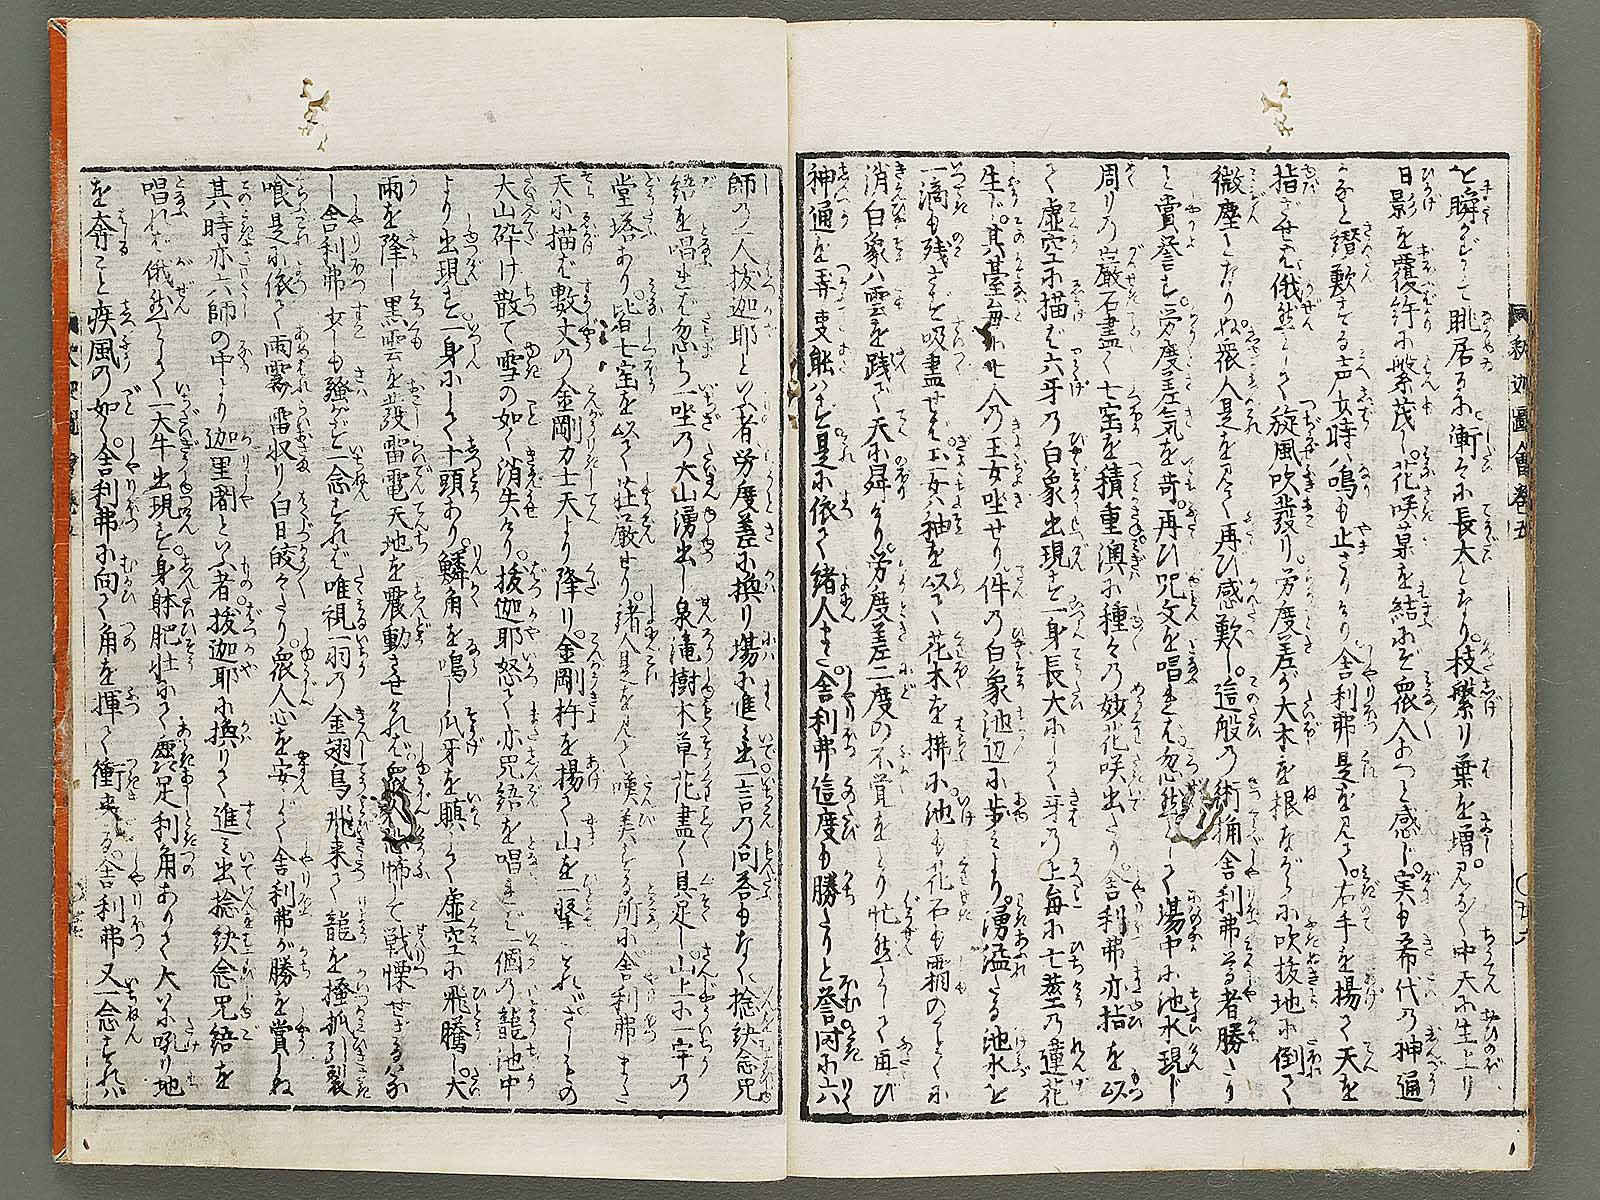 釈迦圖會巻五
を瞬がずして眺居るに漸々に長大となり。枝繁り葉を増。見るが中天に生上り
日影を覆許に繁茂し花咲菓を結ぶ。衆人あつと感じ。実も希代の神通
かなと讃歎する声 時ハ鳴も止ざりけり舎利弗是を見て。右手を揚て天を
指ざせば俄然として旋風吹發り。労度差が大木を根ながらに吹抜地に倒て
微塵となりぬ。衆人是を見て再び感歎し。這般の術捔舎利弗尊者勝たり
と賞誉す。労度差気を苛。再び咒文を唱れば忽然として場中に池水現じ
周りの岩巌石盡く七宝を積重澳に種々の妙花咲出たり。舎利弗亦指を以
て虚空に描ば六牙の白象出現す一身長大にして牙の上毎に七茎の蓮花
生じ。其臺毎に七人の玉女坐せり件の白象池辺に歩より。湧溢たる池水を
一滴も残さず吸盡せば玉女ハ袖を以て花木を拂に池も花石も霜のごとくに
消白象ハ雲を踐で天に昇けり。労度差二度の不覚をとり忙然として再び
神通を弄更能ハず是に依て緒人また。舎利弗這度も勝たりと誉時に六
師の一人抜迦耶といふ者労度差に換り場に進み出一言の问答もなく捻訣念咒
語を唱れば忽ち一坐の大山湧出し泉滝樹木草花盡く具足し山上に一宇の
堂塔あり。皆七宝を以て荘厳せり。緒人是を見て嘆美する所に舎利弗また
天に描ば數丈の金剛力士天より降り。金剛杵を揚て山を一竪 ざしもの
大山砕け散て雪の如く消失けり。抜迦耶怒て亦咒語を唱れば一個の龍池中
より出現す一身にして十頭あり。鱗角を鳴し爪牙を顕して虚空に飛騰し大
雨を降し黒雲を發雷電天地を震動させければ衆人恐怖て戦慄せざるハな
し舎利弗少しも騒がず一念すれば唯視一羽の金翅鳥飛来て龍を搔抓引裂
喰是に依て雨霽雷収り白日皎々たり衆人心を安じて舎利弗が勝を賞しね
其時亦六師の中より迦里闍といふ者抜迦耶に換りて進み出捻訣念咒語を
唱れば俄然として一大牛出現す。身躰肥壮にして蹄足利角ありて大に吼り地
を奔こと疾風の如く。舎利弗に向て角を揮て衝来る。舎利弗又一念すれバ